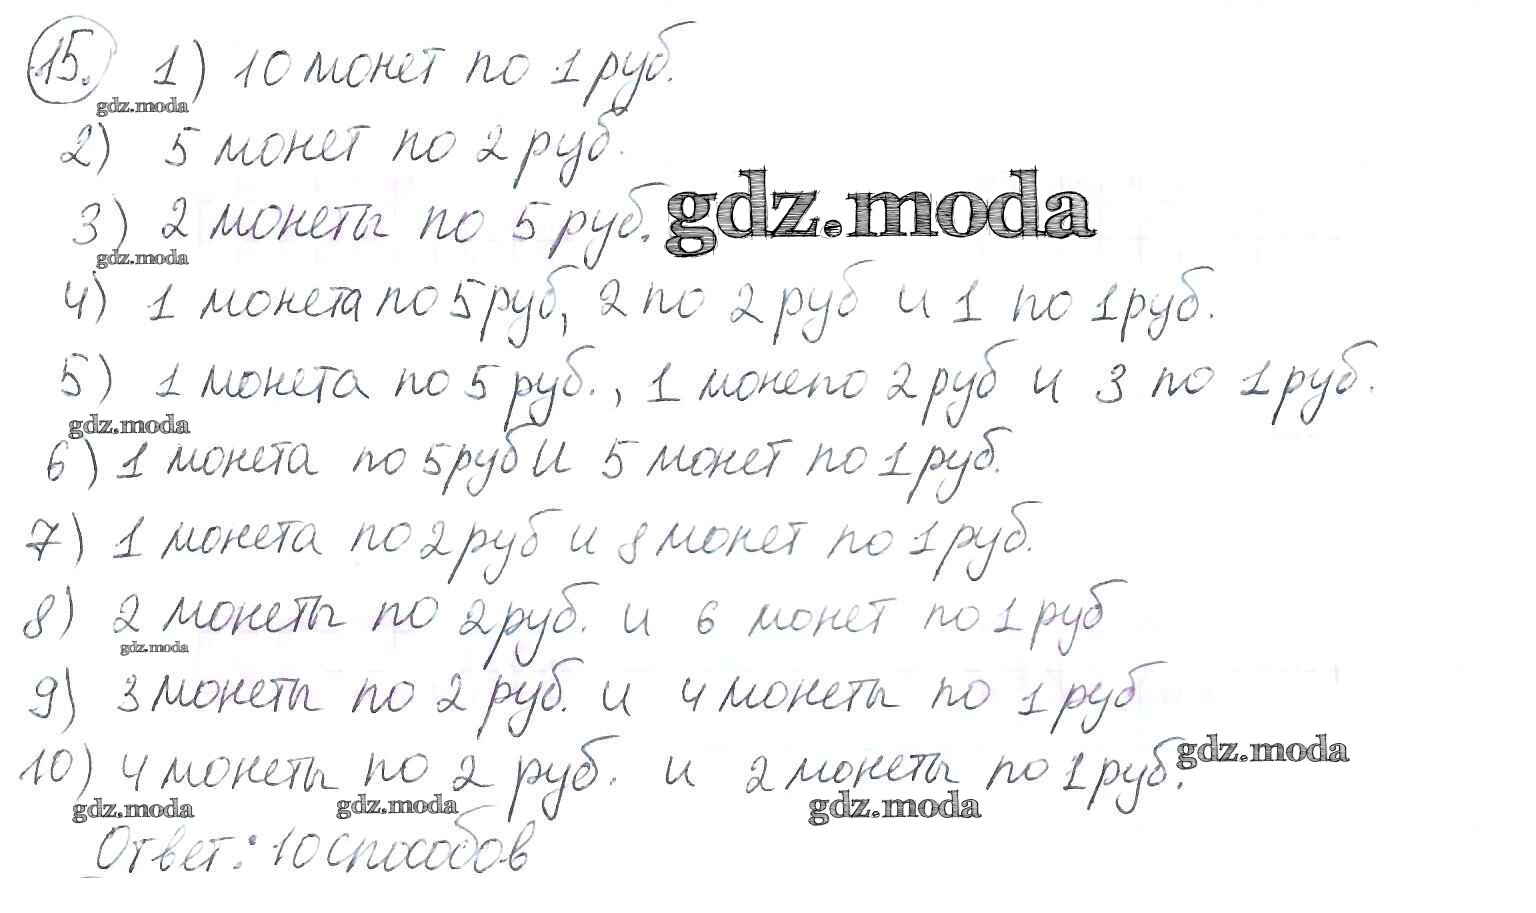 15. 1) 10 монет по 1 руб.
gdz.moda
2) 5 монет по 2 руб.
3) 2 монеты по 5 руб. gdz.moda
gdz.moda
4) 1 монета по 5 руб, 2 по 2 руб и 1 по 1 руб.
5) 1 монета по 5 руб., 1 монепо 2 руб и 3 по 1 руб.
gdz.moda
6) 1 монета по 5 руб и 5 монет по 1 руб.
7) 1 монета по 2 руб и 8 монет по 1 руб.
8) 2 монеты по 2 руб. и 6 монет по 1 руб
gdz.moda
9) 3 монеты по 2 руб. и 4 монеты по 1 руб
10) 4 монеты по 2 руб. и 2 монеты по 1 руб. gdz.moda
gdz.moda gdz.moda gdz.moda
Ответ: 10 способов